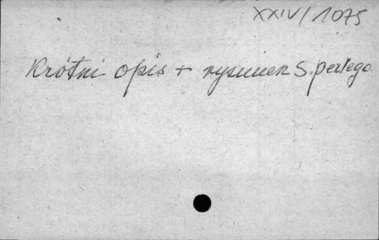 XXIV/1075
Krótki opis + rysunek S. perłego